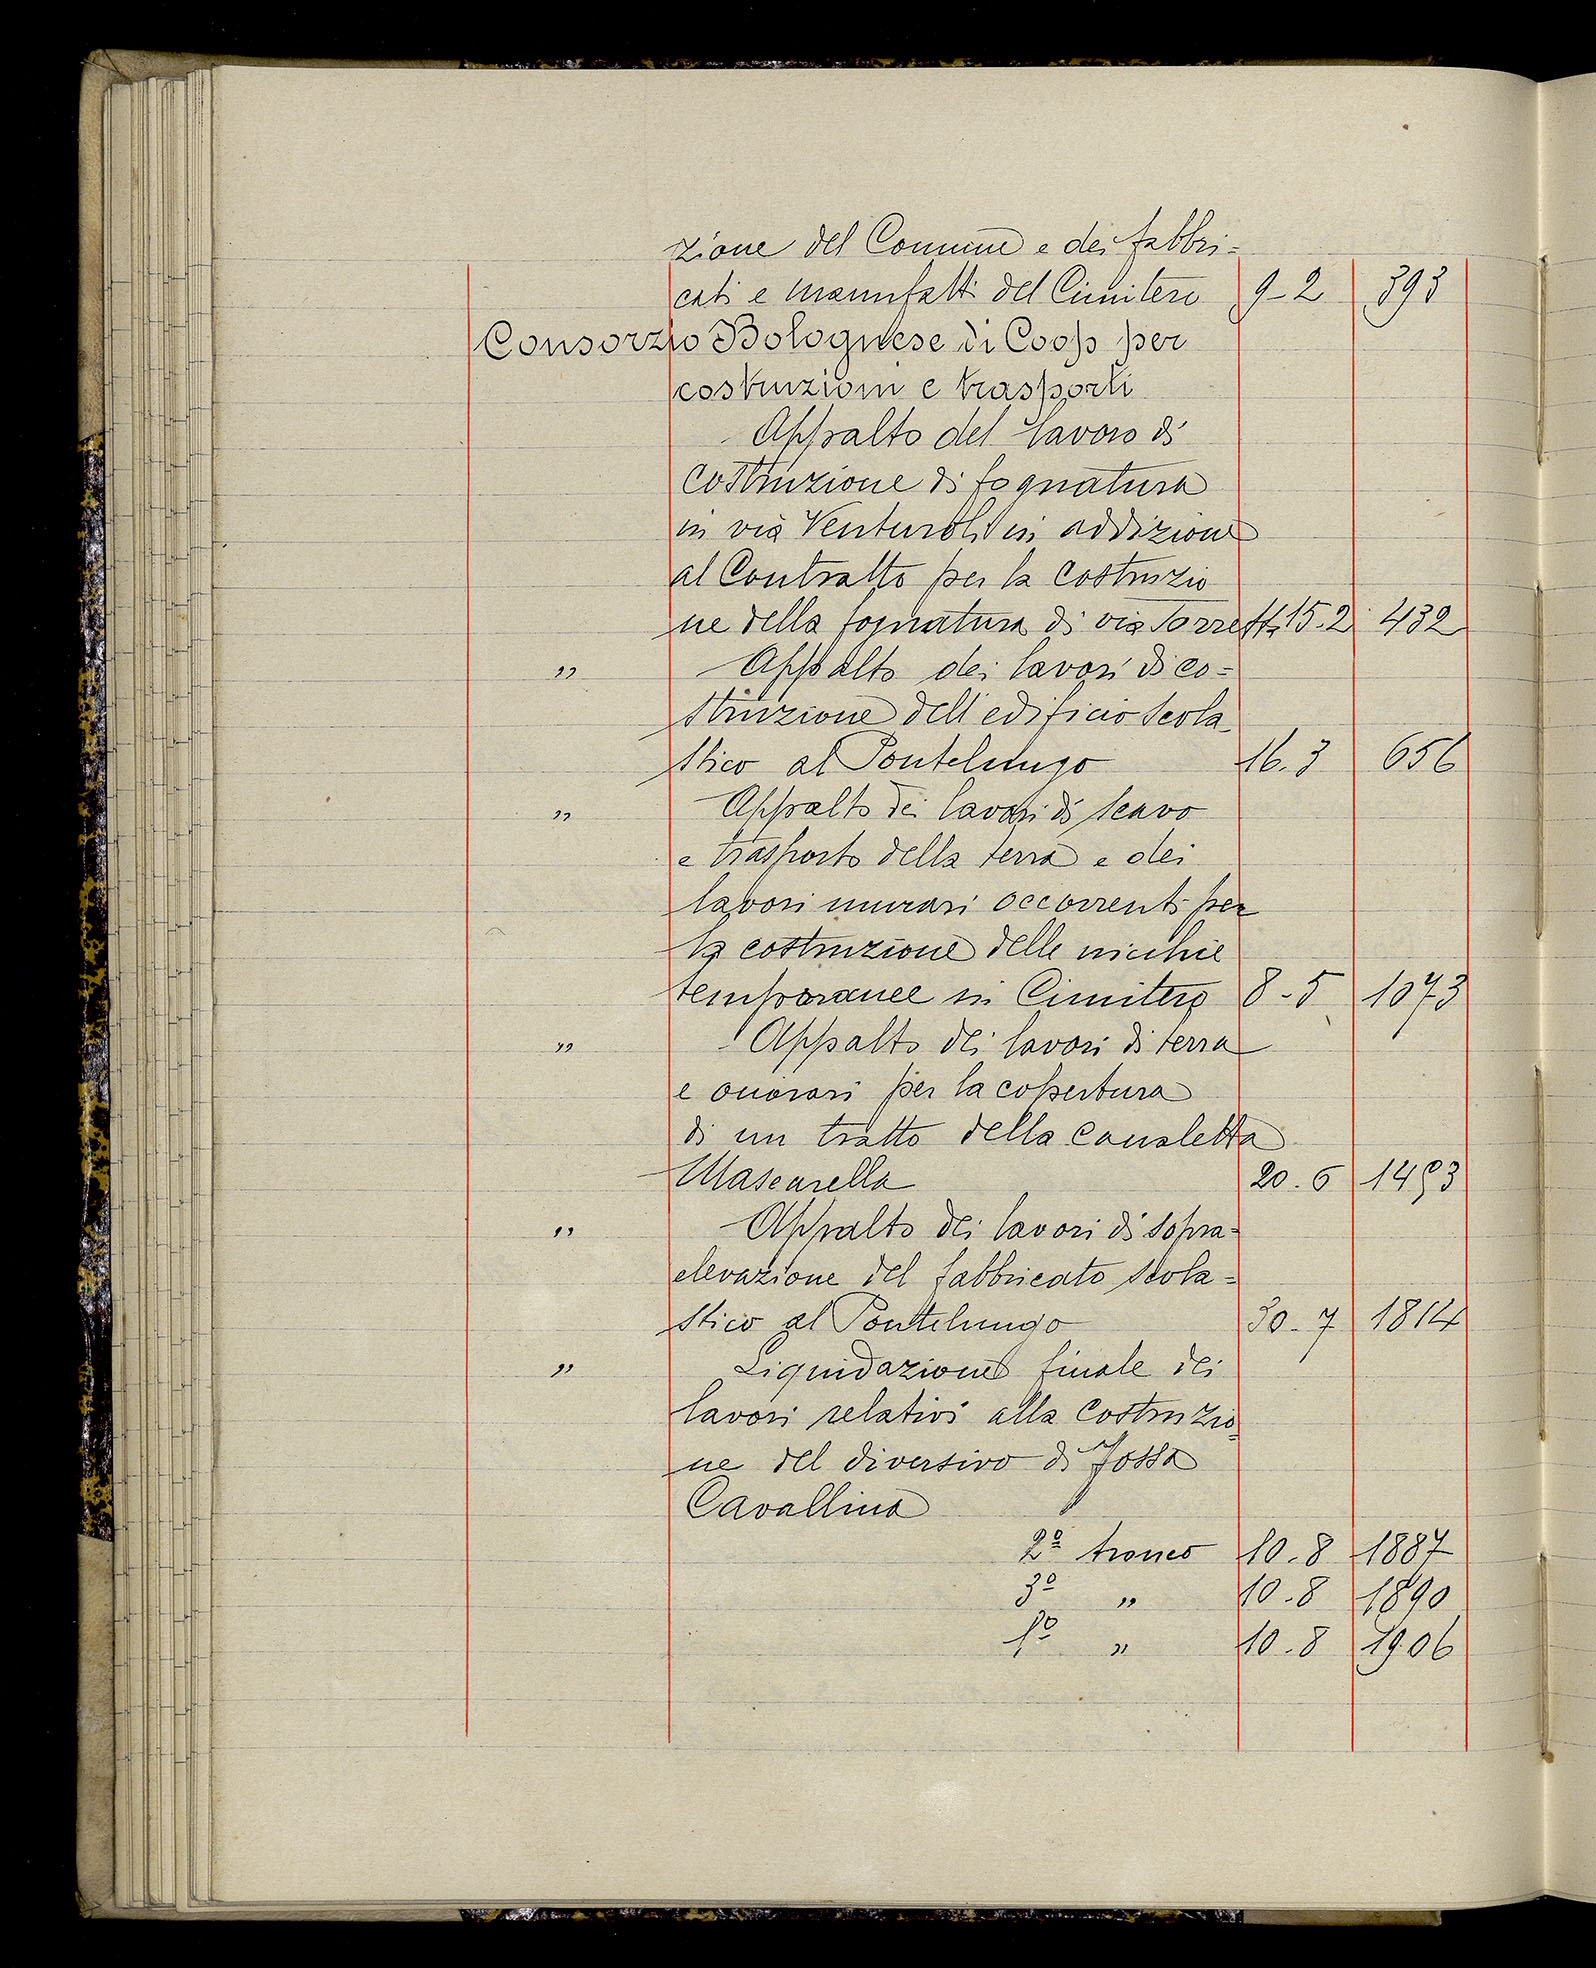 zione del Comune e dei fabbri=
cati e manufatti del Cimitero 9-2 393
Consorzio Bolognese di Coop per
costruzioni e trasporti
Appalto del lavoro di
costruzione di fognatura
in via Venturoli in addizione
al Contratto per la costruzio
ne della fognatura di via Torretta 15.2 432
" Appalto dei lavori di co=
struzione dell'edificio scola-
stico al Pontelungo 16.3 656
" Appalto dei lavori di scavo
e trasporto della terra e dei
lavori murari occorrenti per
la costruzione delle nicchie
temporanee in Cimitero 8-5 1073
" Appalto dei lavori di terra
e murari per la copertura
di un tratto della canaletta
Mascarella 20.6 1493
" Appalto dei lavori di sopra=
elevazione del fabbricato scola=
stico al Pontelungo 30-7 1814
" Liquidazione finale dei
lavori relativi alla costruzio=
ne del diversivo di Fossa
Cavallina
2º tronco 10.8 1887
3º " 10-8 1890
1º " 10-8 1906